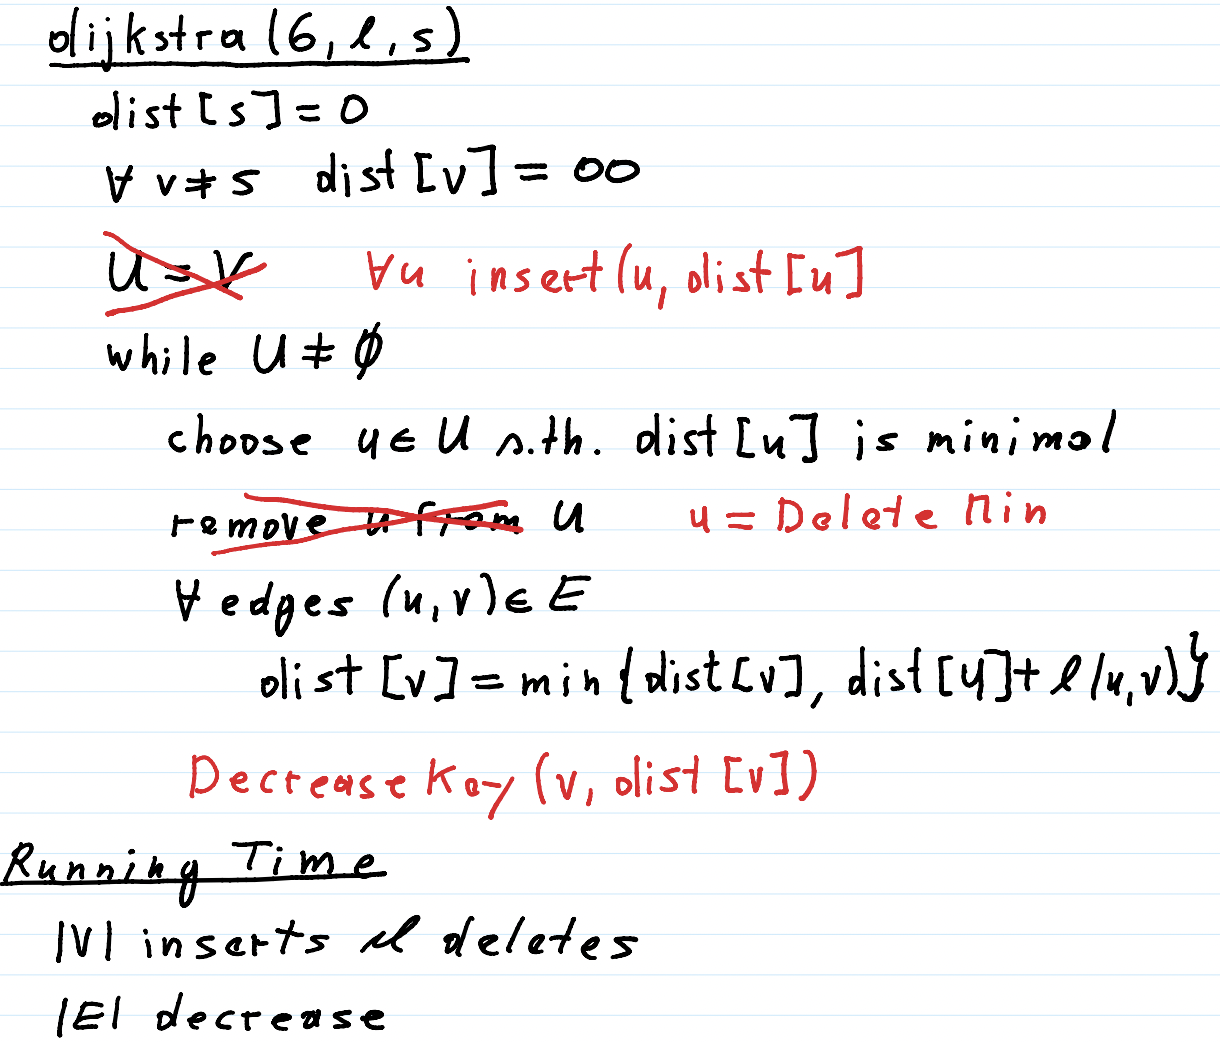 dijkstra(G, l, s)
dist[s] = 0
∀ v ≠ s dist[v] = ∞
U = V ∀u insert(u, dist[u]
while U ≠ ∅
choose u ∈ U s.th. dist[u] is minimal
remove u from U u = Delete Min
∀ edges (u, v) ∈ E
dist[v] = min{dist[v], dist[u] + l(u,v)}
Decrease Key (v, dist[v])
Running Time
|V| inserts & deletes
|E| decrease